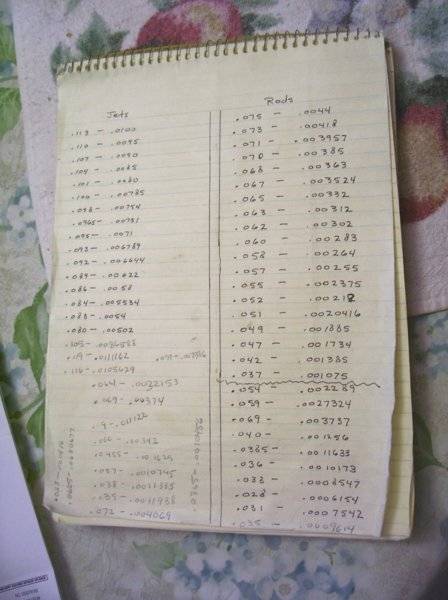 Jets
.113 - .0100
.110 - .0095
.107 - .0090
.104 - .0085
.101 - .0080
.100 - .00785
.098 - .00754
.0965 - .00731
.095 - .0071
.093 - .006789
.092 - .006644
.089 - .00622
.086 - .0058
.084 - .005534
.083 - .0054
.080 - .00502
.105 - .0086583
.119 - .0111162
.116 - .0105629
.069 - .00374
.066 - .00342
.037 - .0010745
.038 - .0011335
.072 - .004069
Rods
.075 - .0044
.073 - .00418
.071 - .003957
.070 - .00385
.068 - .00363
.067 - .003524
.065 - .00332
.063 - .00312
.062 - .00302
.060 - .00283
.058 - .00264
.057 - .00255
.055 - .002375
.052 - .00212
.051 - .0020416
.049 - .001885
.047 - .001734
.042 - .001385
.037 - .001075
.054 - .002289
.059 - .0027324
.069 - .003737
.040 - .001256
.0385 - .0011635
.036 - .0010173
.033 - .0008547
.028 - .0006154
.031 - .0007542
.035 - .0009614